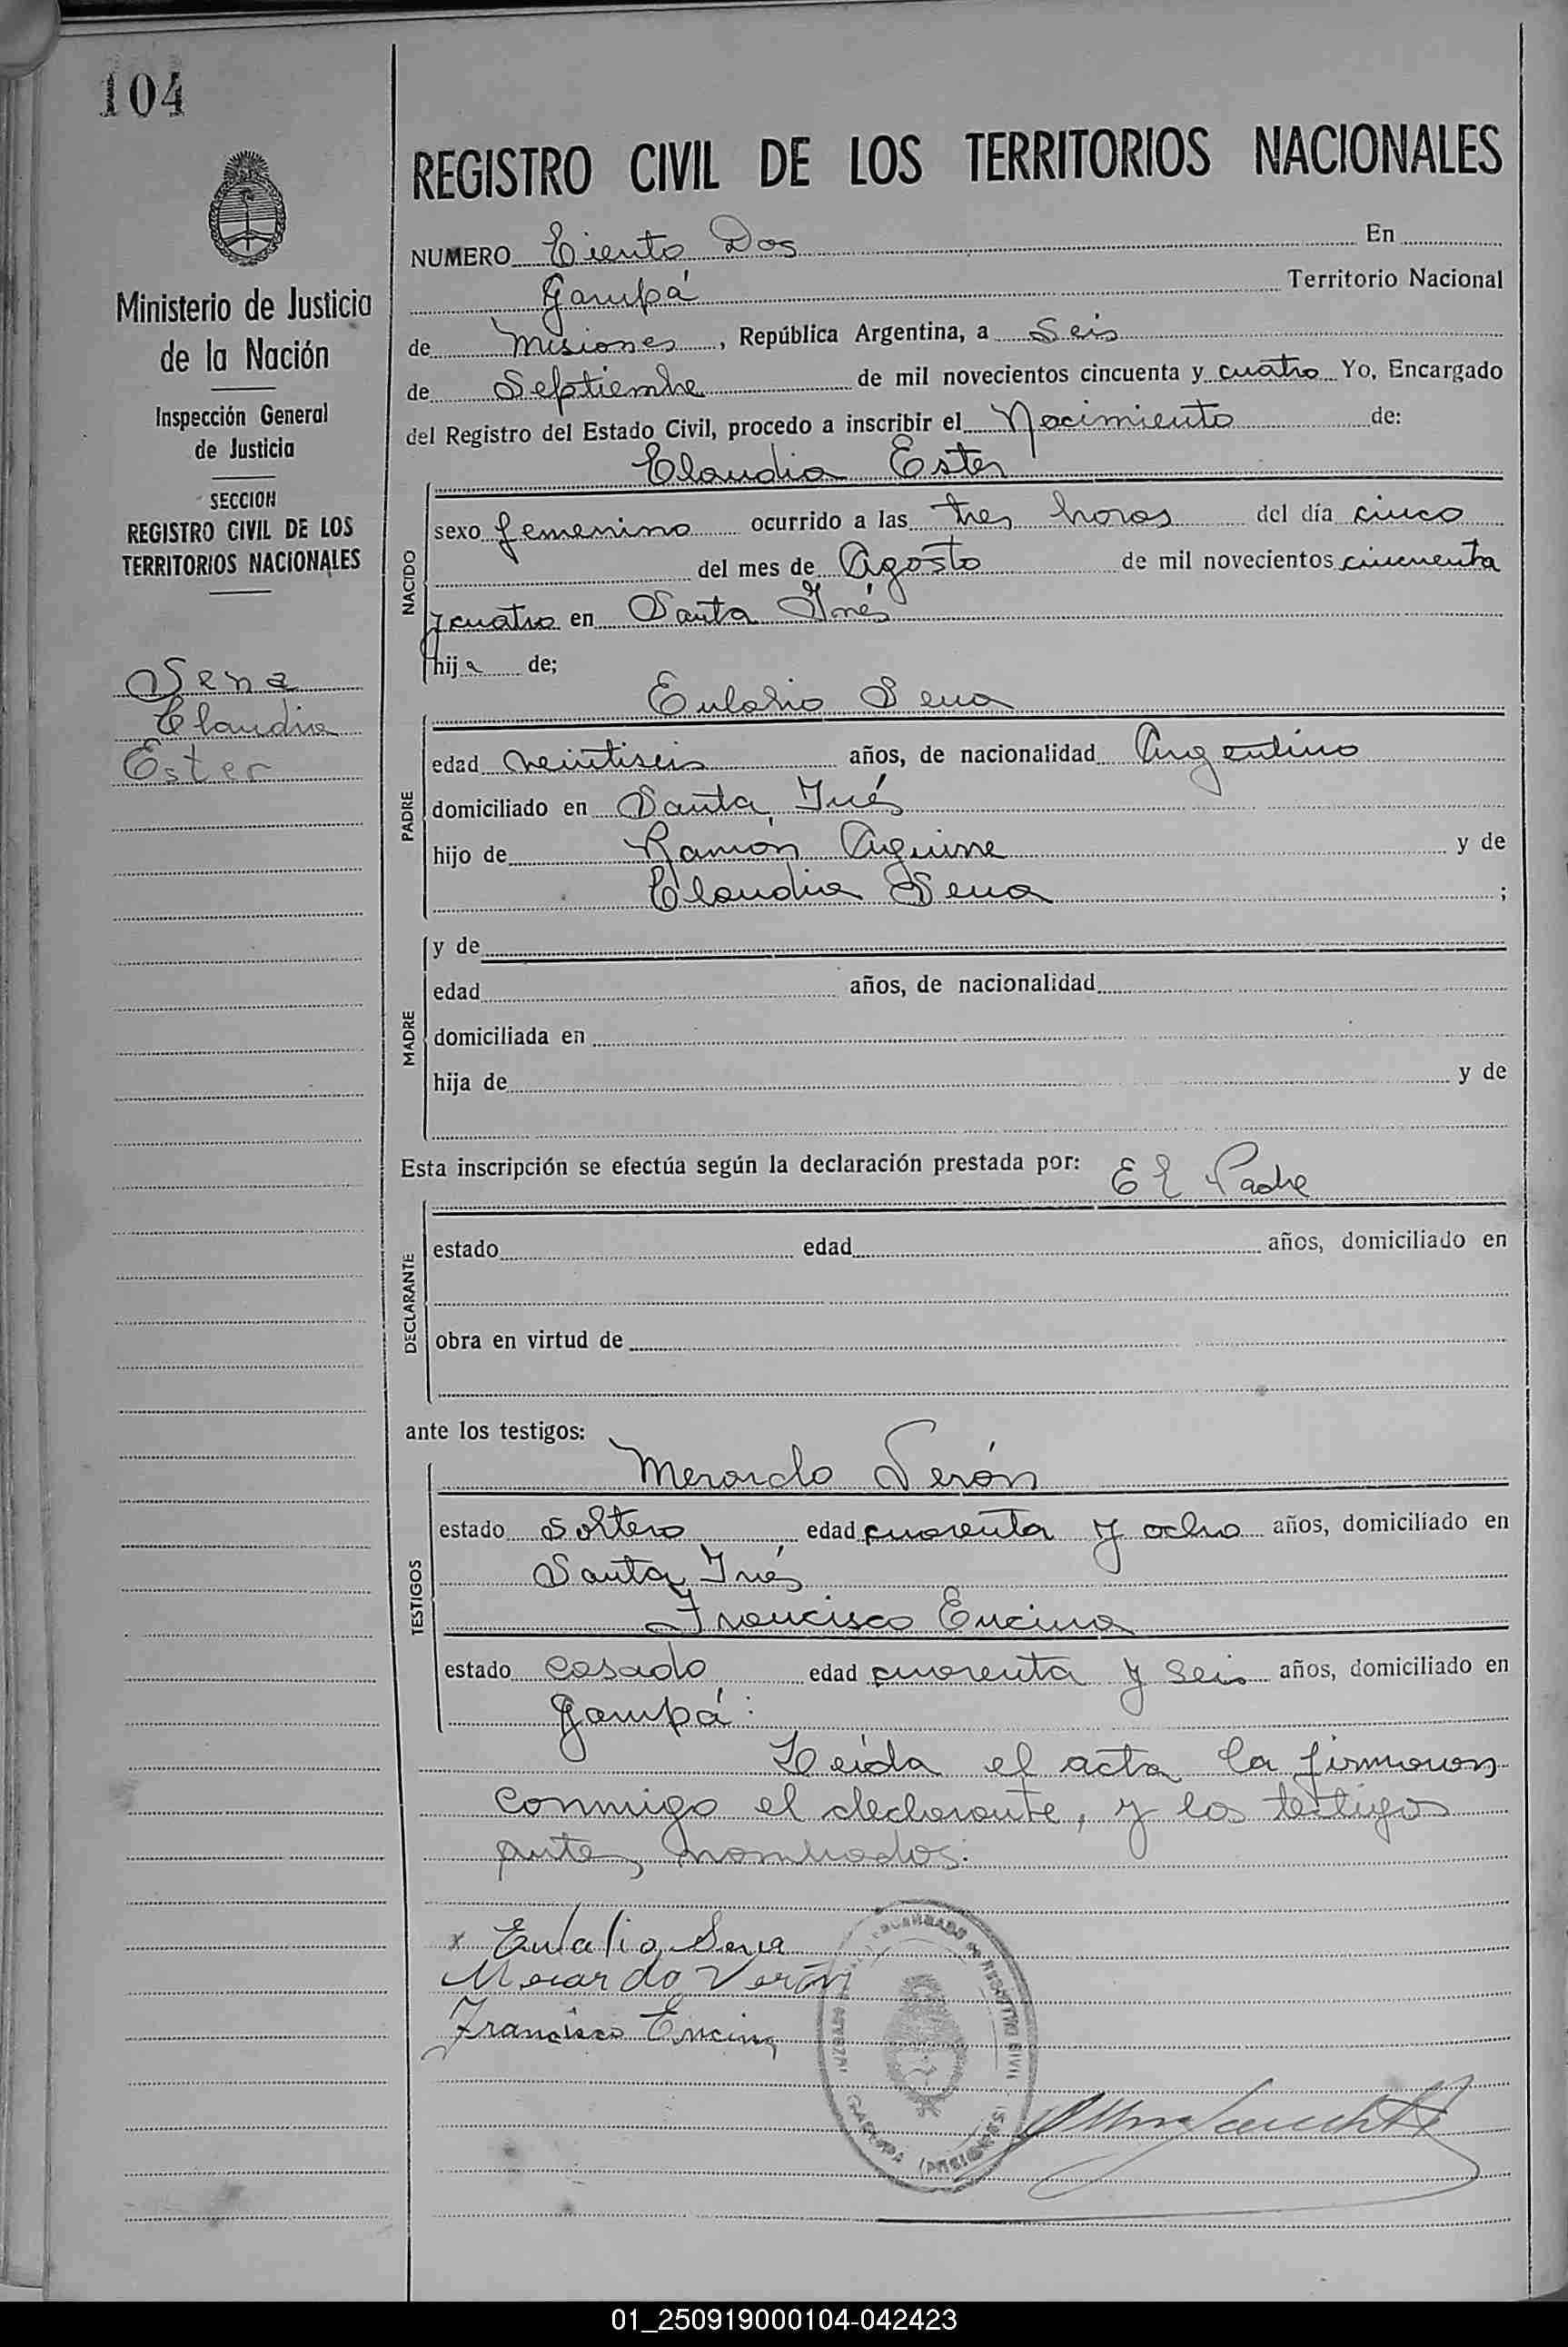 104
REGISTRO CIVIL DE LOS TERRITORIOS NACIONALES
NUMERO Ciento Dos En
Garupá Territorio Nacional
de Misiones, República Argentina, a Seis
de Septiembre de mil novecientos cincuenta y cuatro Yo, Encargado
del Registro del Estado Civil, procedo a inscribir el Nacimiento de:
Claudia Ester
NACIDO
sexo femenino ocurrido a las tres horas del día cinco
del mes de Agosto de mil novecientos cincuenta
y cuatro en Santa Inés
hija de;
Eulalio Sena
PADRE
edad veintiseis años, de nacionalidad Argentino
domiciliado en Santa Inés
hijo de Ramón Aguirre y de
Claudia Sena ;
MADRE
y de
edad años, de nacionalidad
domiciliada en
hija de y de
Esta inscripción se efectúa según la declaración prestada por: El Padre
DECLARANTE
estado edad años, domiciliado en
obra en virtud de
ante los testigos:
Merardo Verón
TESTIGOS
estado soltero edad cuarenta y ocho años, domiciliado en
Santa Inés
Francisco Encina
estado casado edad cuarenta y seis años, domiciliado en
Garupá.
Leída el acta la firmaron
conmigo el declarante, y los testigos
antes nombrados.
x Eulalio Sena
Merardo Verón
Francisco Encina
Ministerio de Justicia
de la Nación
Inspección General
de Justicia
SECCION
REGISTRO CIVIL DE LOS
TERRITORIOS NACIONALES
Sena
Claudia
Ester
01_250919000104-042423